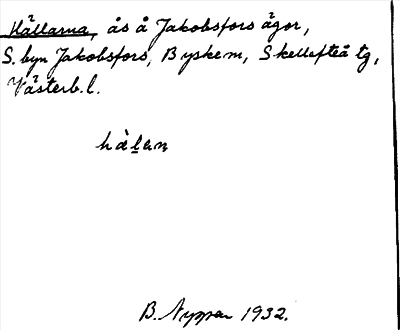 Hällarna, ås å Jakobsfors ägor,
S. byn Jakobsfors, Byske m, Skellefteå tg,
Västerb. l.
B. 1932.